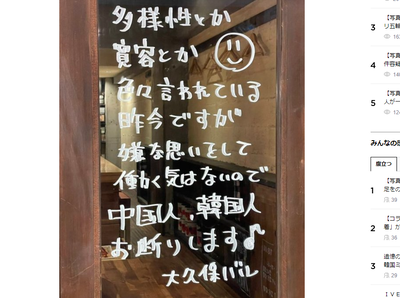 多様性とか
寛容とか
色々言われている
昨今ですが
嫌な思いをして
働く気はないので
中国人、韓国人
お断りします♪
大久保バル
【写真
3
リ五輪
【写真
4
件容疑
【写真
5
人が一
みんなの感
役立つ
1
【写真
足をの
39
2
【コラ
着」が
36
3
道徳の
韓国ミ
29
ＩＶＥ